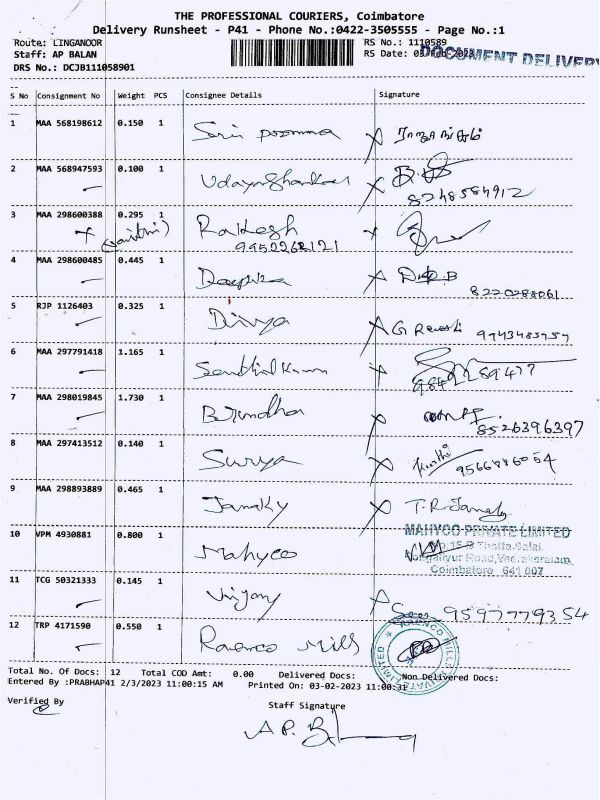 THE PROFESSIONAL COURIERS, Coimbatore
Delivery Runsheet - P41 - Phone No.:0422-3505555 - Page No.:1
Route: LINGANOOR RS No.: 1110589
Staff: AP BALAN RS Date: DOCUMENT DELIVERY
DRS No.: DCJB111058901
S No Consignment No Weight PCS Consignee Details Signature
1 MAA 568198612 0.150 1
2 MAA 568947593 0.100 1 Udayashankar
8248584912
3 MAA 298600388 0.295 1 Rakhesh
9952262121
4 MAA 298600485 0.445 1 Deepika
8220288061
5 RJP 1126403 0.325 1 Divya G Revathi 9943485757
6 MAA 297791418 1.165 1 Senthil Kumar
7 MAA 298019845 1.730 1 Brindha
8526396397
8 MAA 297413512 0.140 1 Surya
9566886054
9 MAA 298893889 0.465 1 Janaky T.R. Janaky
10 VPM 4930881 0.800 1 Mahyco MAHYCO PRIVATE LIMITED
Coimbatore 641 007
11 TCG 50321333 0.145 1 9597779354
12 TRP 4171590 0.550 1 Raenco Mills
Total No. Of Docs: 12 Total COD Amt: 0.00 Delivered Docs: Non Delivered Docs:
Entered By :PRABHAP41 2/3/2023 11:00:15 AM Printed On: 03-02-2023 11:00:31
Verified By Staff Signature